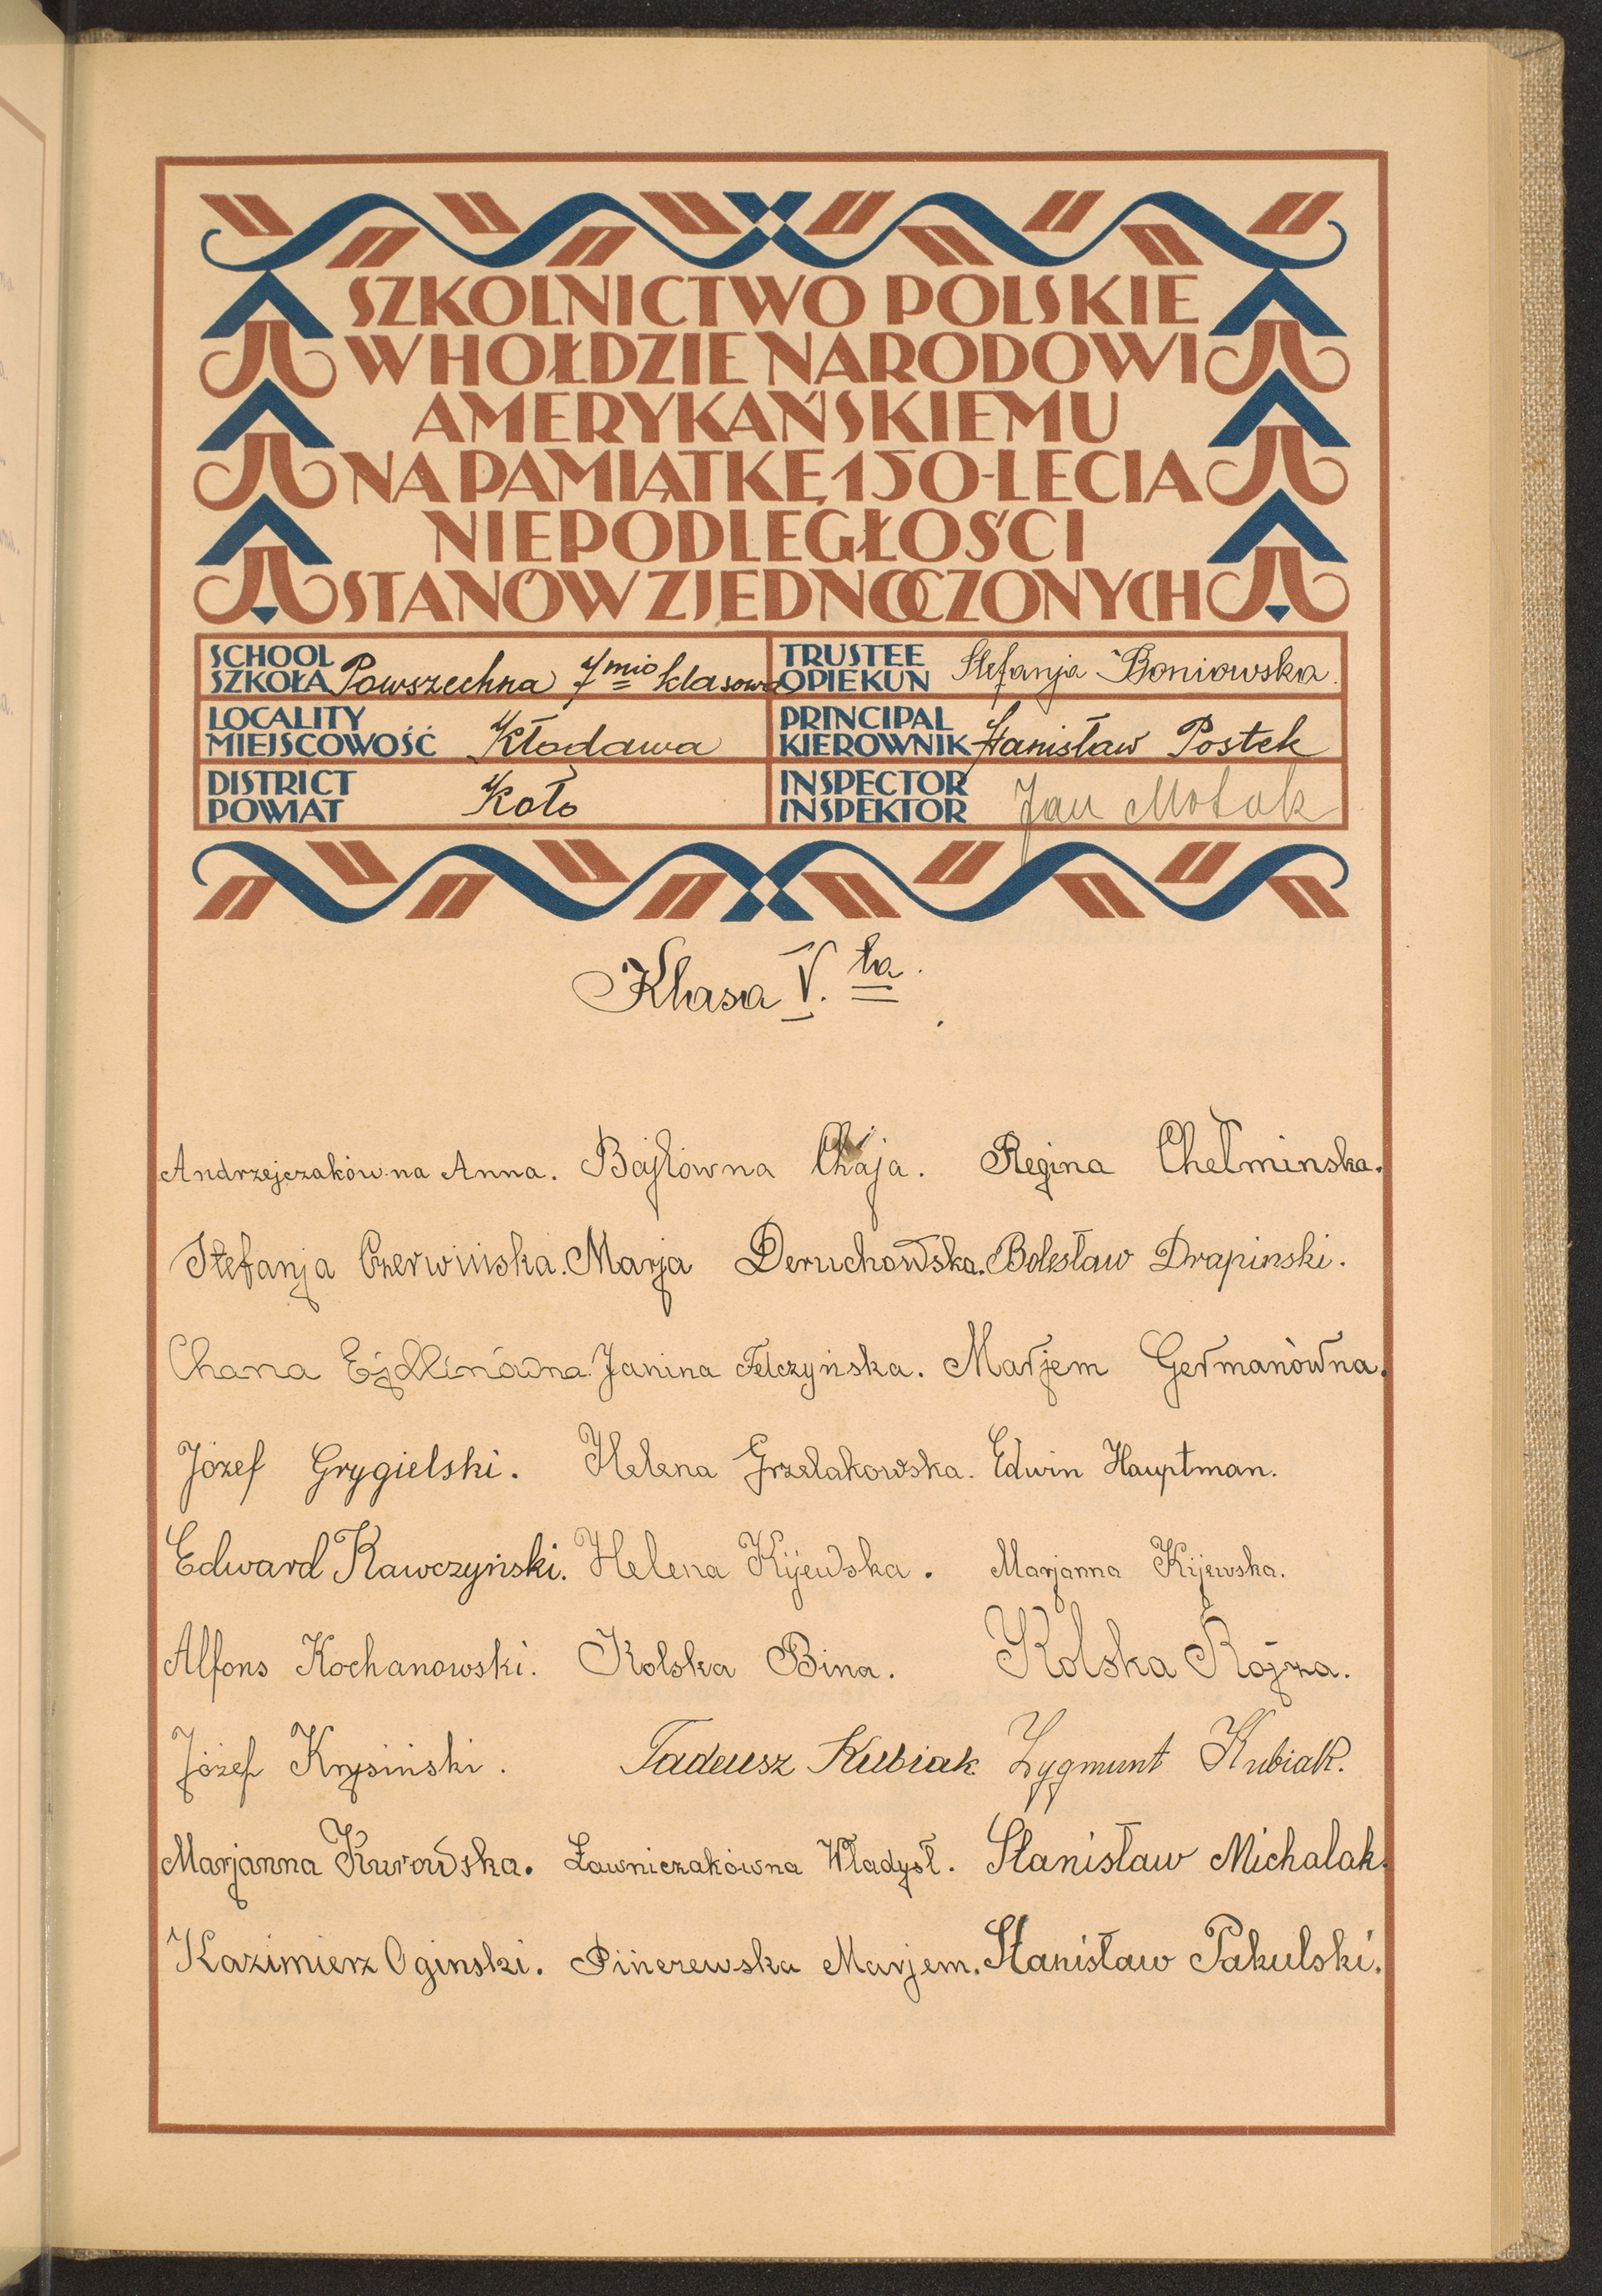 SZKOLNICTWO POLSKIE
W HOŁDZIE NARODOWI
AMERYKAŃSKIEMU
NA PAMIĄTKĘ 150-LECIA
NIEPODLEGŁOŚCI
STANÓW ZJEDNOCZONYCH
SCHOOL
SZKOŁA Powszechna 7mio klasowa
TRUSTEE
OPIEKUN Stefanja Boniowska.
LOCALITY
MIEJSCOWOŚĆ Kłodawa
PRINCIPAL
KIEROWNIK Stanisław Postek
DISTRICT
POWIAT Koło
INSPECTOR
INSPEKTOR Jan
Klasa V. ta.
Andrzejczakówna Anna. Bajłówna Chaja. Regina Chełminska.
Stefanja Czerwińska. Marja Deruchowska. Bolesław Drapinski.
Chana Ejdlinówna. Janina Felczyńska. Marjem Germanówna.
Józef Grygielski. Helena Grzelakowska. Edwin Hauptman.
Edward Kawczyński. Helena Kijewska. Marjanna Kijewska.
Alfons Kochanowski. Kolska Bina. Kolska Rójza.
Józef Krysiński. Tadeusz Kubiak Zygmunt Kubiak.
Marjanna Kurowska. Ławniczakówna Władysł. Stanisław Michalak.
Kazimierz Oginski. Pińczewska Marjem. Stanisław Pakulski.